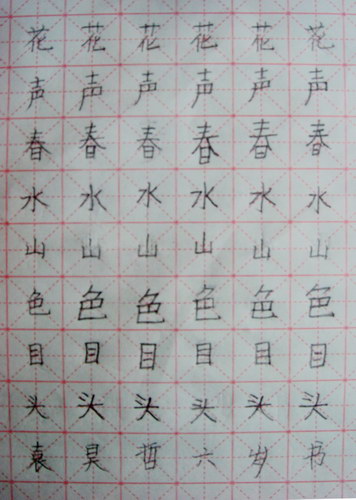 花花花花花花
声声声声声声
春春春春春春
水水水水水水
山山山山山山
色色色色色色
目目目目目目
头头头头头头
袁昊哲六岁书